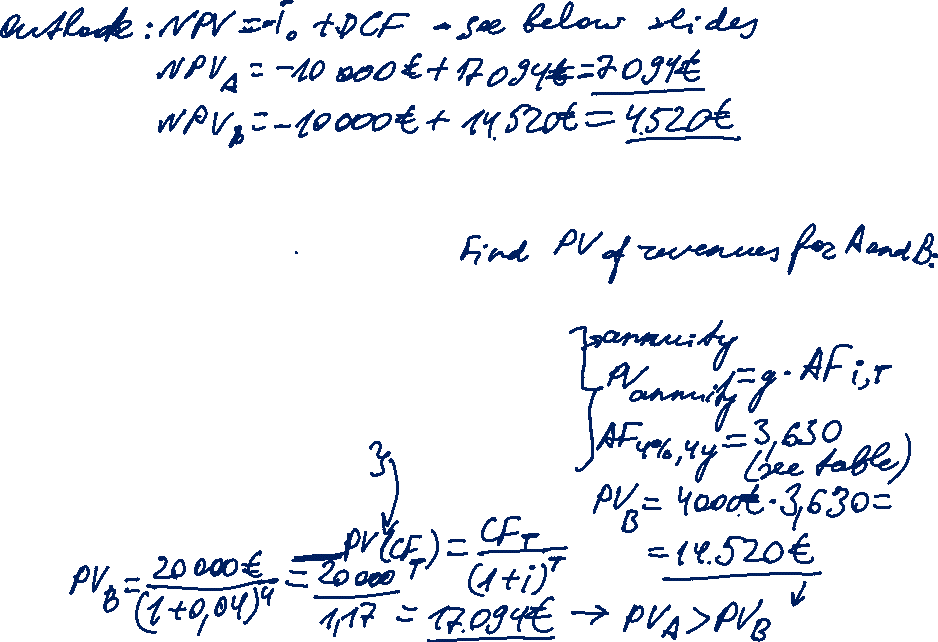 outlook: NPV = -I₀ + DCF - see below slides
NPV_A = -10 000€ + 17 094€ = 7 094€
NPV_B = -10000€ + 14.520€ = 4.520€
Find PV of revenues for A and B:
annuity
PV annuity = g · AF i,T
AF 4%, 4y = 3,630
(see table)
PV_B = 4000€ · 3,630 =
= 14.520€
3,
PV(CF_T) = CF_T / (1+i)^T
PV_B = 20 000€ / (1+0,04)^4 = 20 000 / 1,17 = 17.094€ → PV_A > PV_B